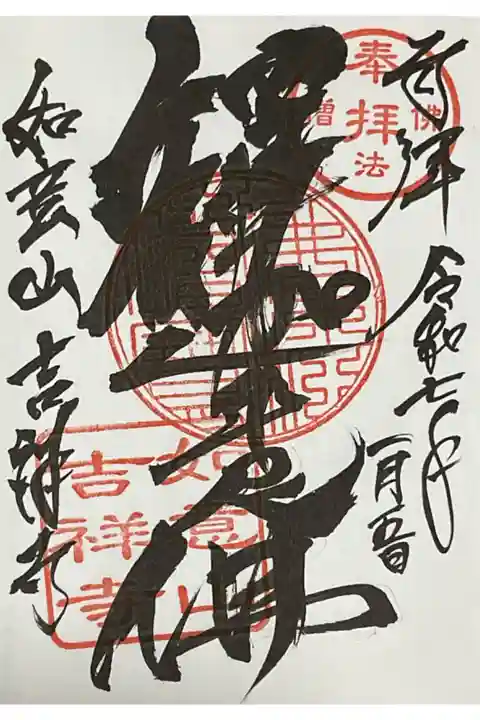 奉拝 令和七年
一月五日
釋迦牟尼佛
如意山 吉祥寺
奉拝
佛
法
僧
如意山
吉祥寺